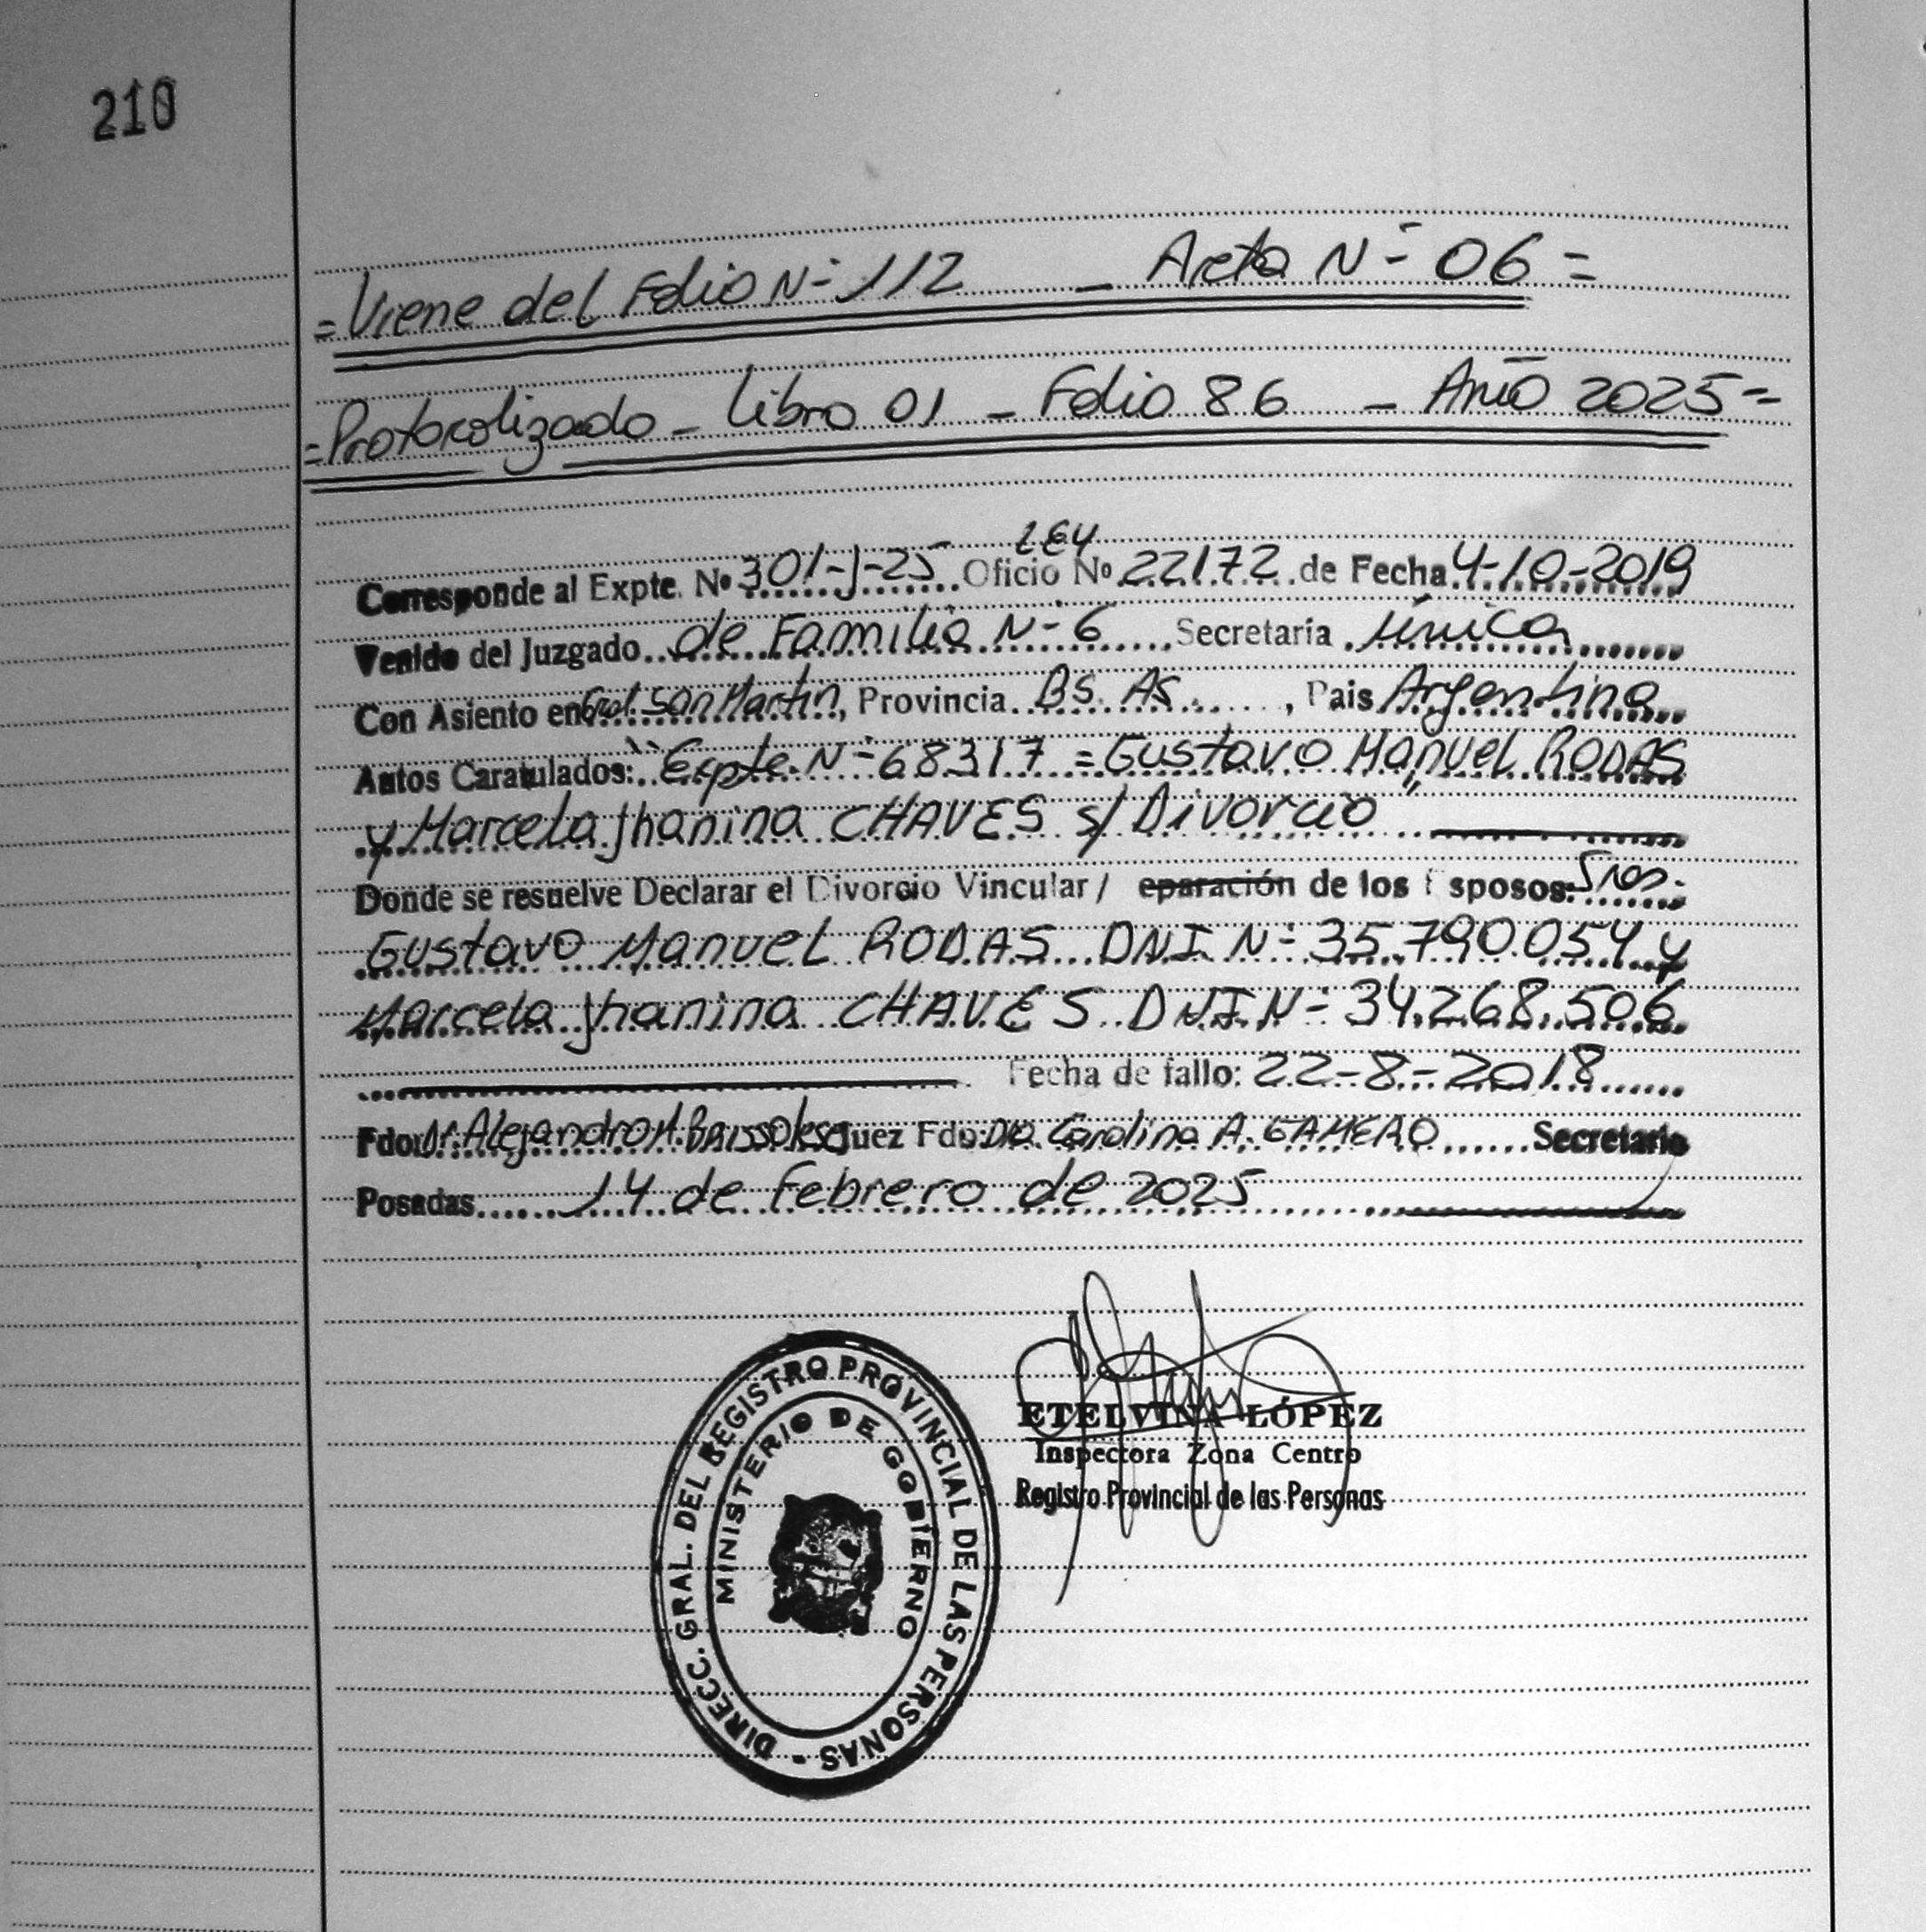 210
=Viene del Folio Nº 112 - Acta Nº 06=
=Protocolizado - Libro 01 - Folio 86 - Año 2025=
LEY
Corresponde al Expte. Nº 301-J-25 Oficio Nº 22172 de Fecha 4-10-2019
Venido del Juzgado de Familia Nº 6 Secretaría Única
Con Asiento en Gral. San Martín, Provincia BS. AS , Pais Argentina
Autos Caratulados: "Expte. Nº 68317 = Gustavo Manuel RODAS
y Marcela Jhanina CHAVES s/ Divorcio"
Donde se resuelve Declarar el Divorcio Vincular / eparación de los Esposos: Sres.
Gustavo Manuel RODAS DNI Nº 35.790.054 y
Marcela Jhanina CHAVES DNI Nº 34.268.506
Fecha de fallo: 22-8-2018
Fdo: Dr. Alejandro H. Juez Fdo: Dra. Carolina A. GAMERO Secretario
Posadas 14 de Febrero de 2025
DIRECC. GRAL. DEL REGISTRO PROVINCIAL DE LAS PERSONAS -
MINISTERIO DE GOBIERNO
ETELVINA LÓPEZ
Inspectora Zona Centro
Registro Provincial de las Personas